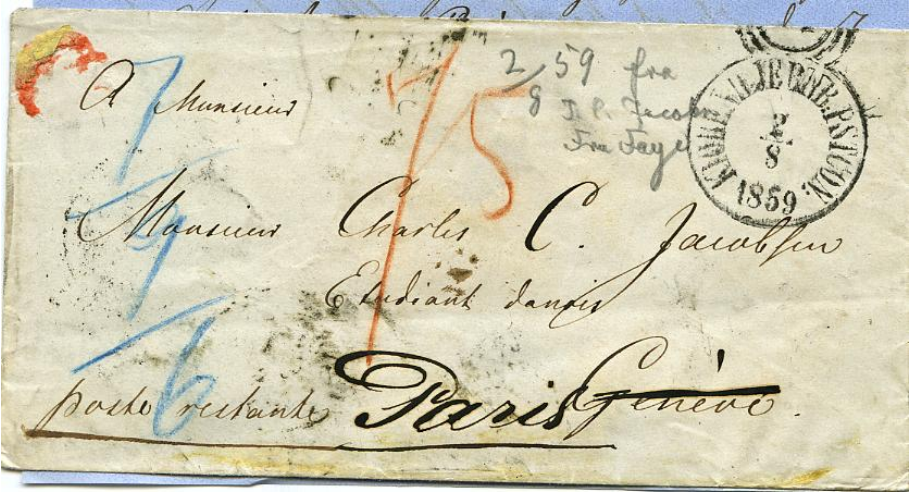 7
9
6
15
2/8 59 fra
J. C. Jacobsen
Fra Faye
KIØBENH. JERNB. PST. CON.
2
8
1859
A Monsieur
Monsieur Charles C. Jacobsen
Etudiant danois
poste restante Paris Genève.